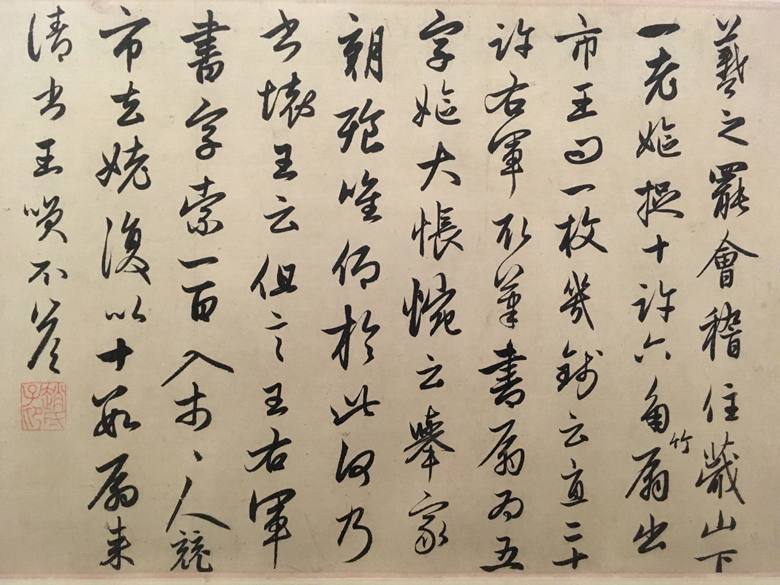 羲之罷會稽住蕺山下
一老嫗捉十許六角竹扇出
市王曰一枚幾錢云直二十
許右軍取筆書扇為五
字嫗大悵惋云舉家
朝飧唯仰於此何乃
書壞王云但言王右軍
書字索一百入市市人競
市去姥復以十數扇來
請書王哂不答
趙氏子印